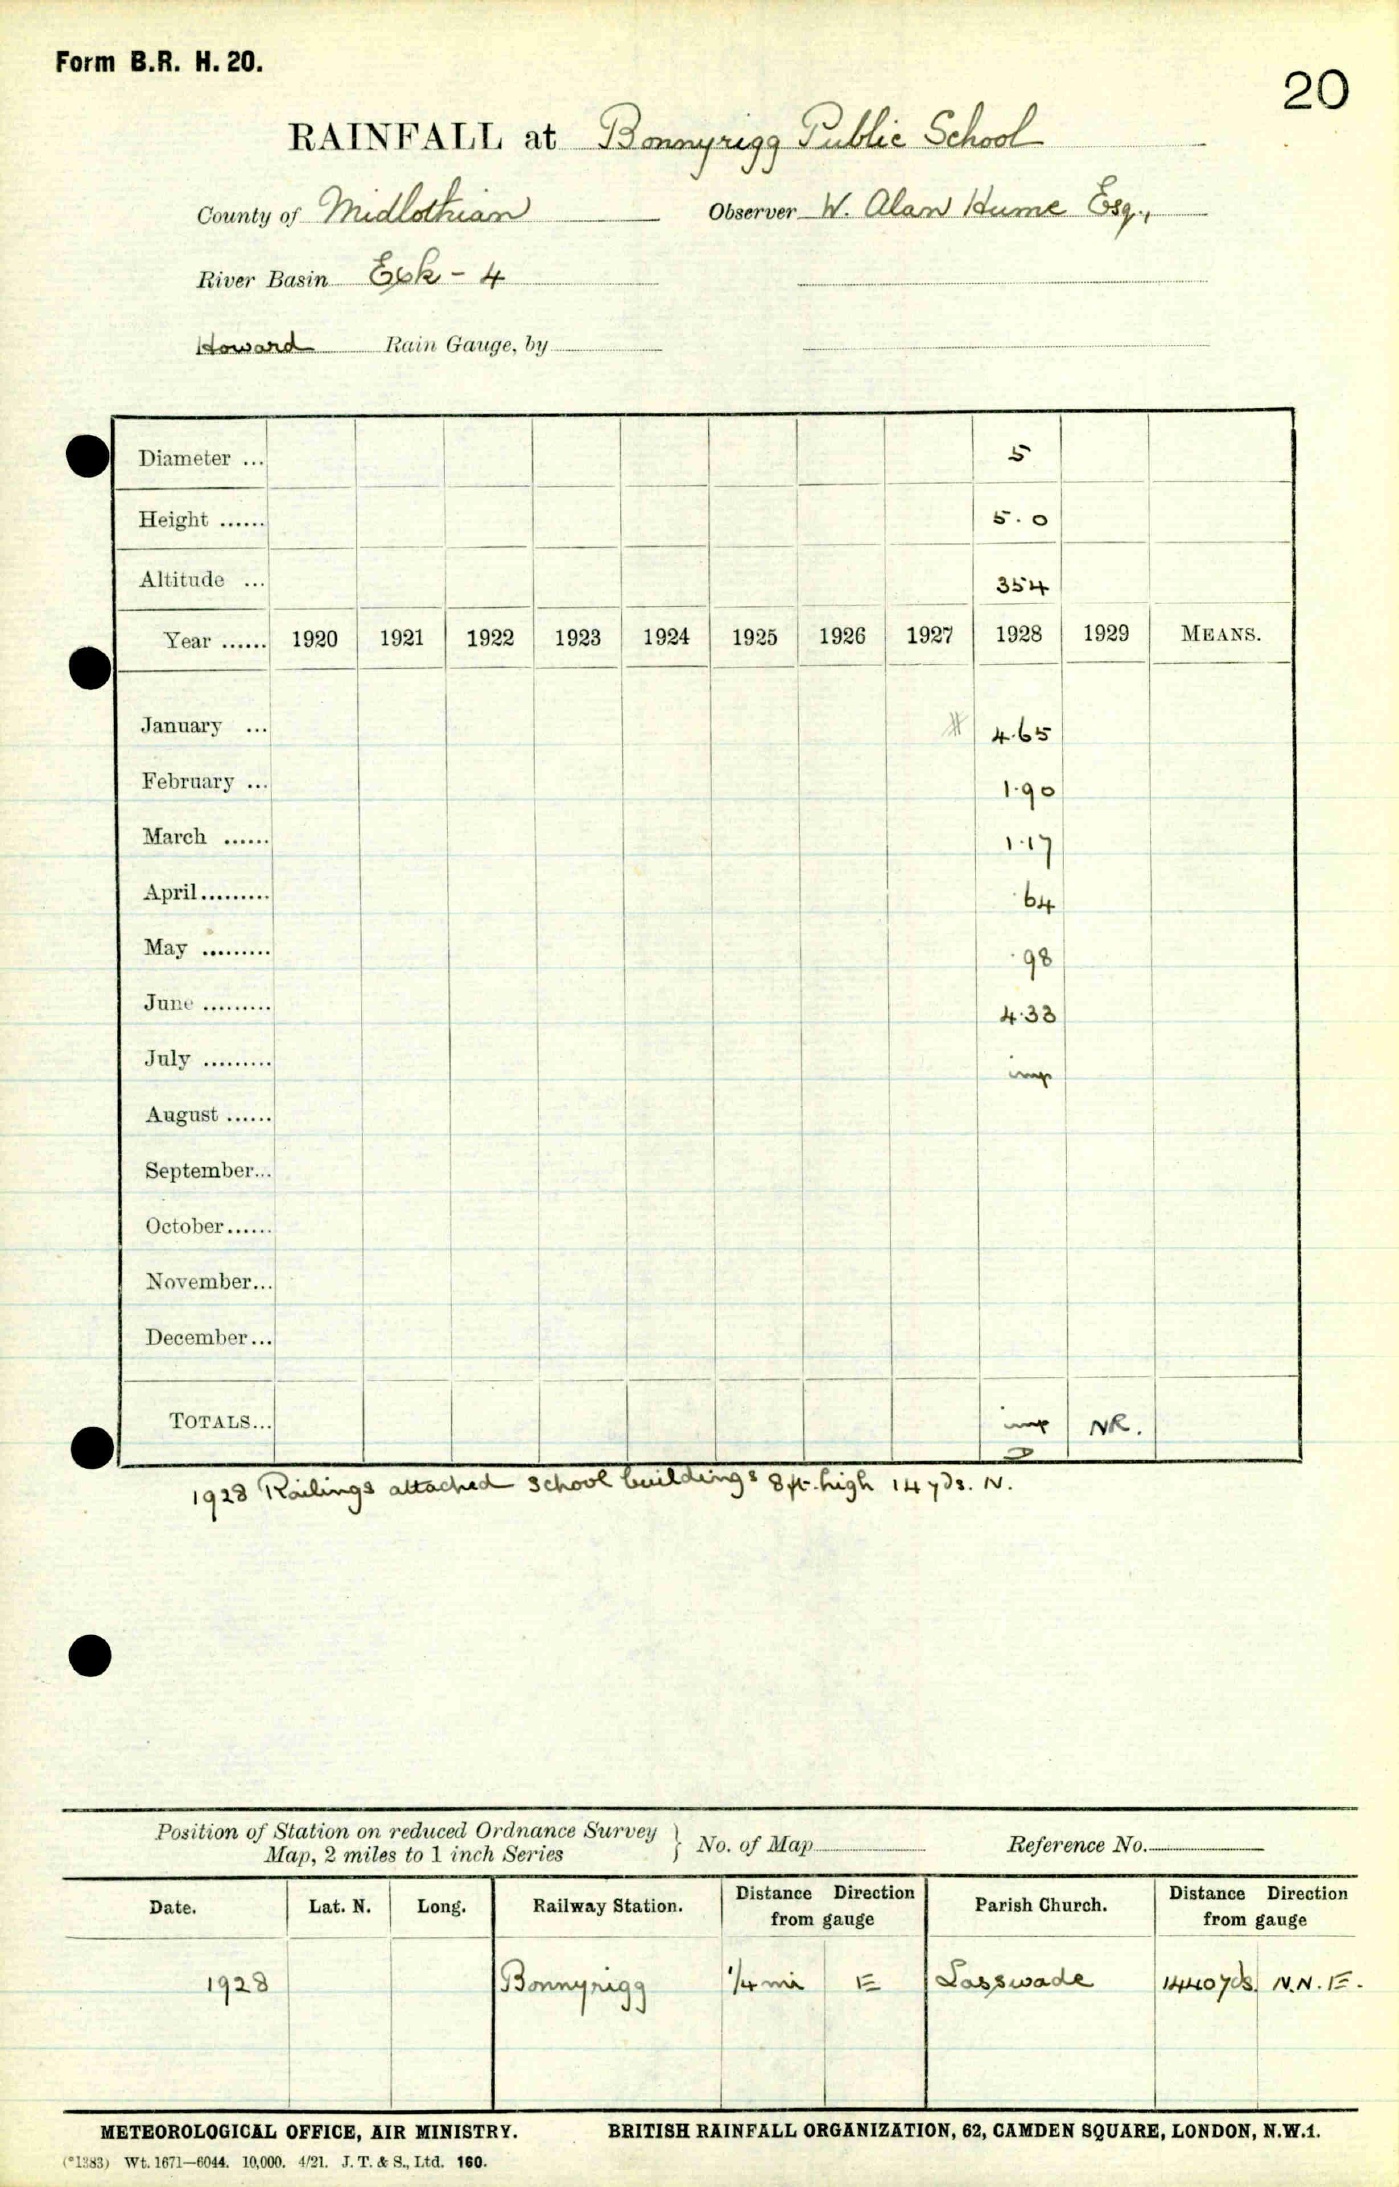 Form B.R. H. 20.
20
RAINFALL at Bonnyrigg Public School
County of Midlothian Observer W. Alan Hume Esq.,
River Basin Esk - 4
Howard Rain Gauge, by
Diameter ... 5
Height ...... 5.0
Altitude ... 354
Year ...... 1920 1921 1922 1923 1924 1925 1926 1927 1928 1929 MEANS.
January ... # 4.65
February ... 1.90
March ...... 1.17
April......... .64
May ......... .98
June ......... 4.33
July ......... imp
August ......
September...
October......
November...
December...
TOTALS... imp NR.
D
1928 Railings attached school buildings 8ft. high 14 yds. N.
Position of Station on reduced Ordnance Survey } No. of Map Reference No.
Map, 2 miles to 1 inch Series
Date. Lat. N. Long. Railway Station. Distance Direction from gauge Parish Church. Distance Direction from gauge
1928 Bonnyrigg 1/4 mi E Lasswade 1440 yds. N.N.E.
METEOROLOGICAL OFFICE, AIR MINISTRY. BRITISH RAINFALL ORGANIZATION, 62, CAMDEN SQUARE, LONDON, N.W.1.
(*1383) Wt. 1671—6044. 10,000. 4/21. J. T. & S., Ltd. 160.